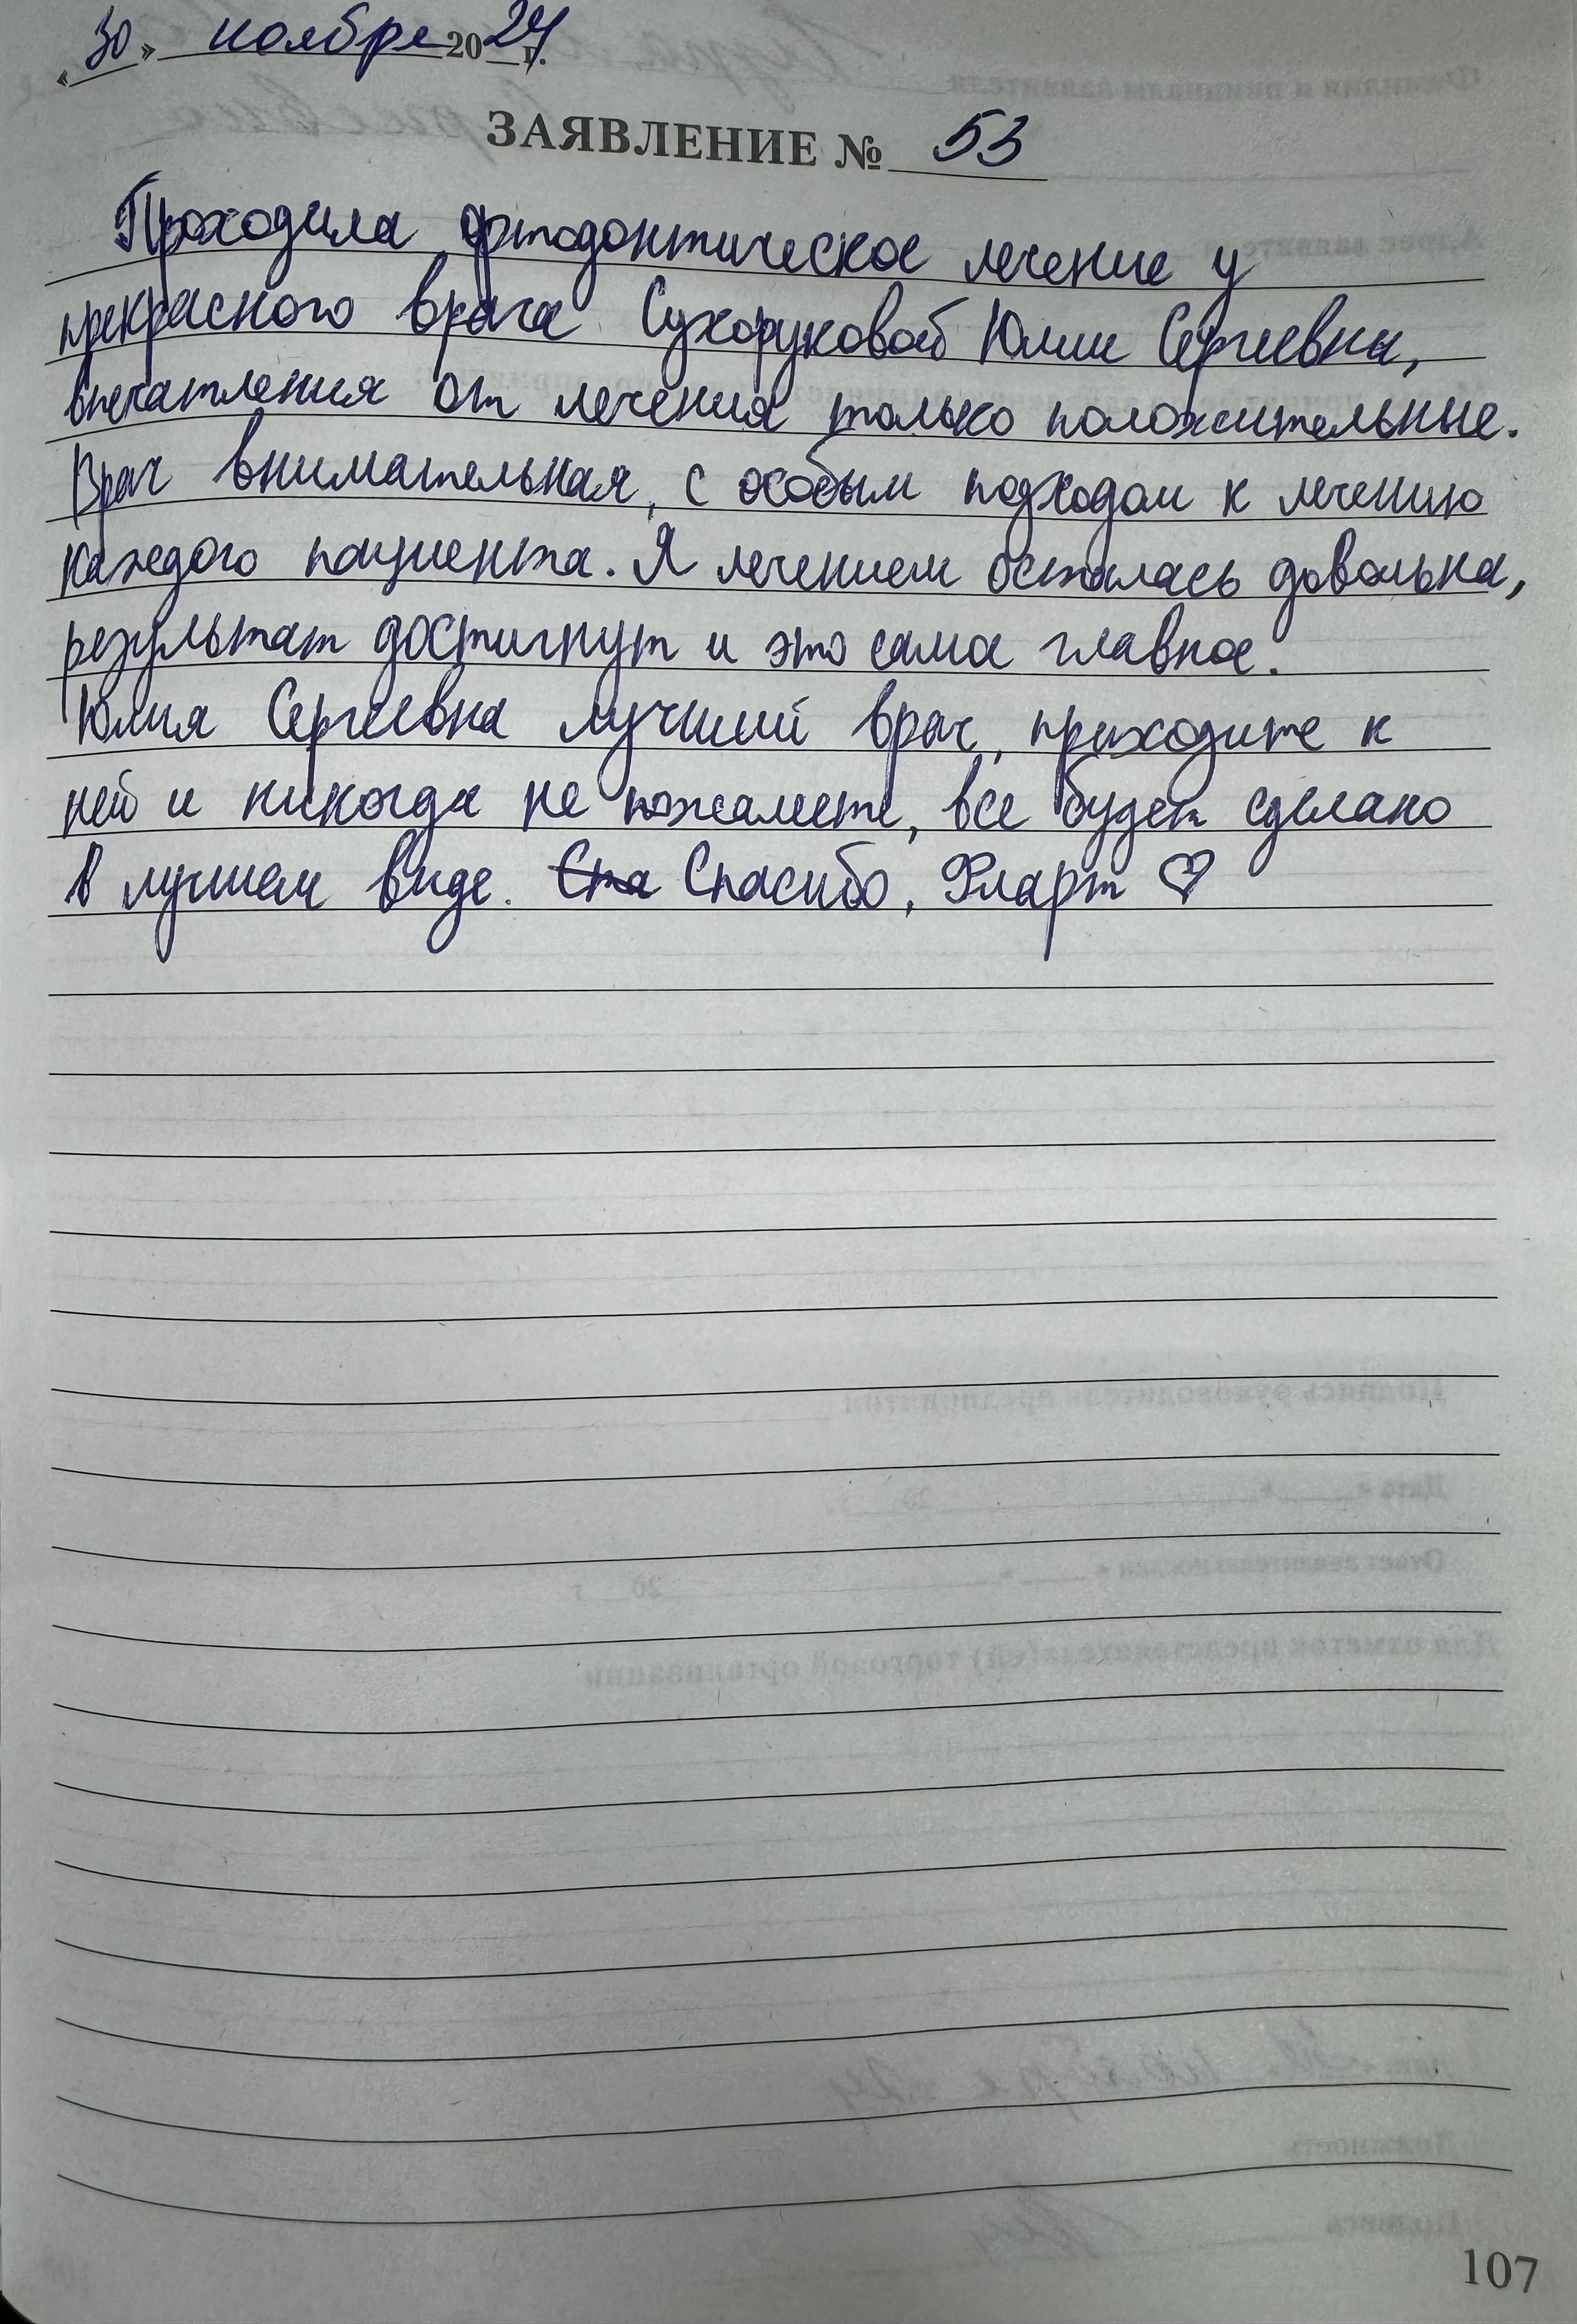 «30» ноября 2024 г.
ЗАЯВЛЕНИЕ № 53
Проходила ортодонтическое лечение у
прекрасного врача Сухоруковой Юлии Сергеевны,
впечатления от лечения только положительные.
Врач внимательная, с особым подходом к лечению
каждого пациента. Я лечением осталась довольна,
результат достигнут и это само главное.
Юлия Сергеевна лучший врач, приходите к
ней и никогда не пожалеете, все будет сделано
в лучшем виде. Спа Спасибо, Фларт ♡
107